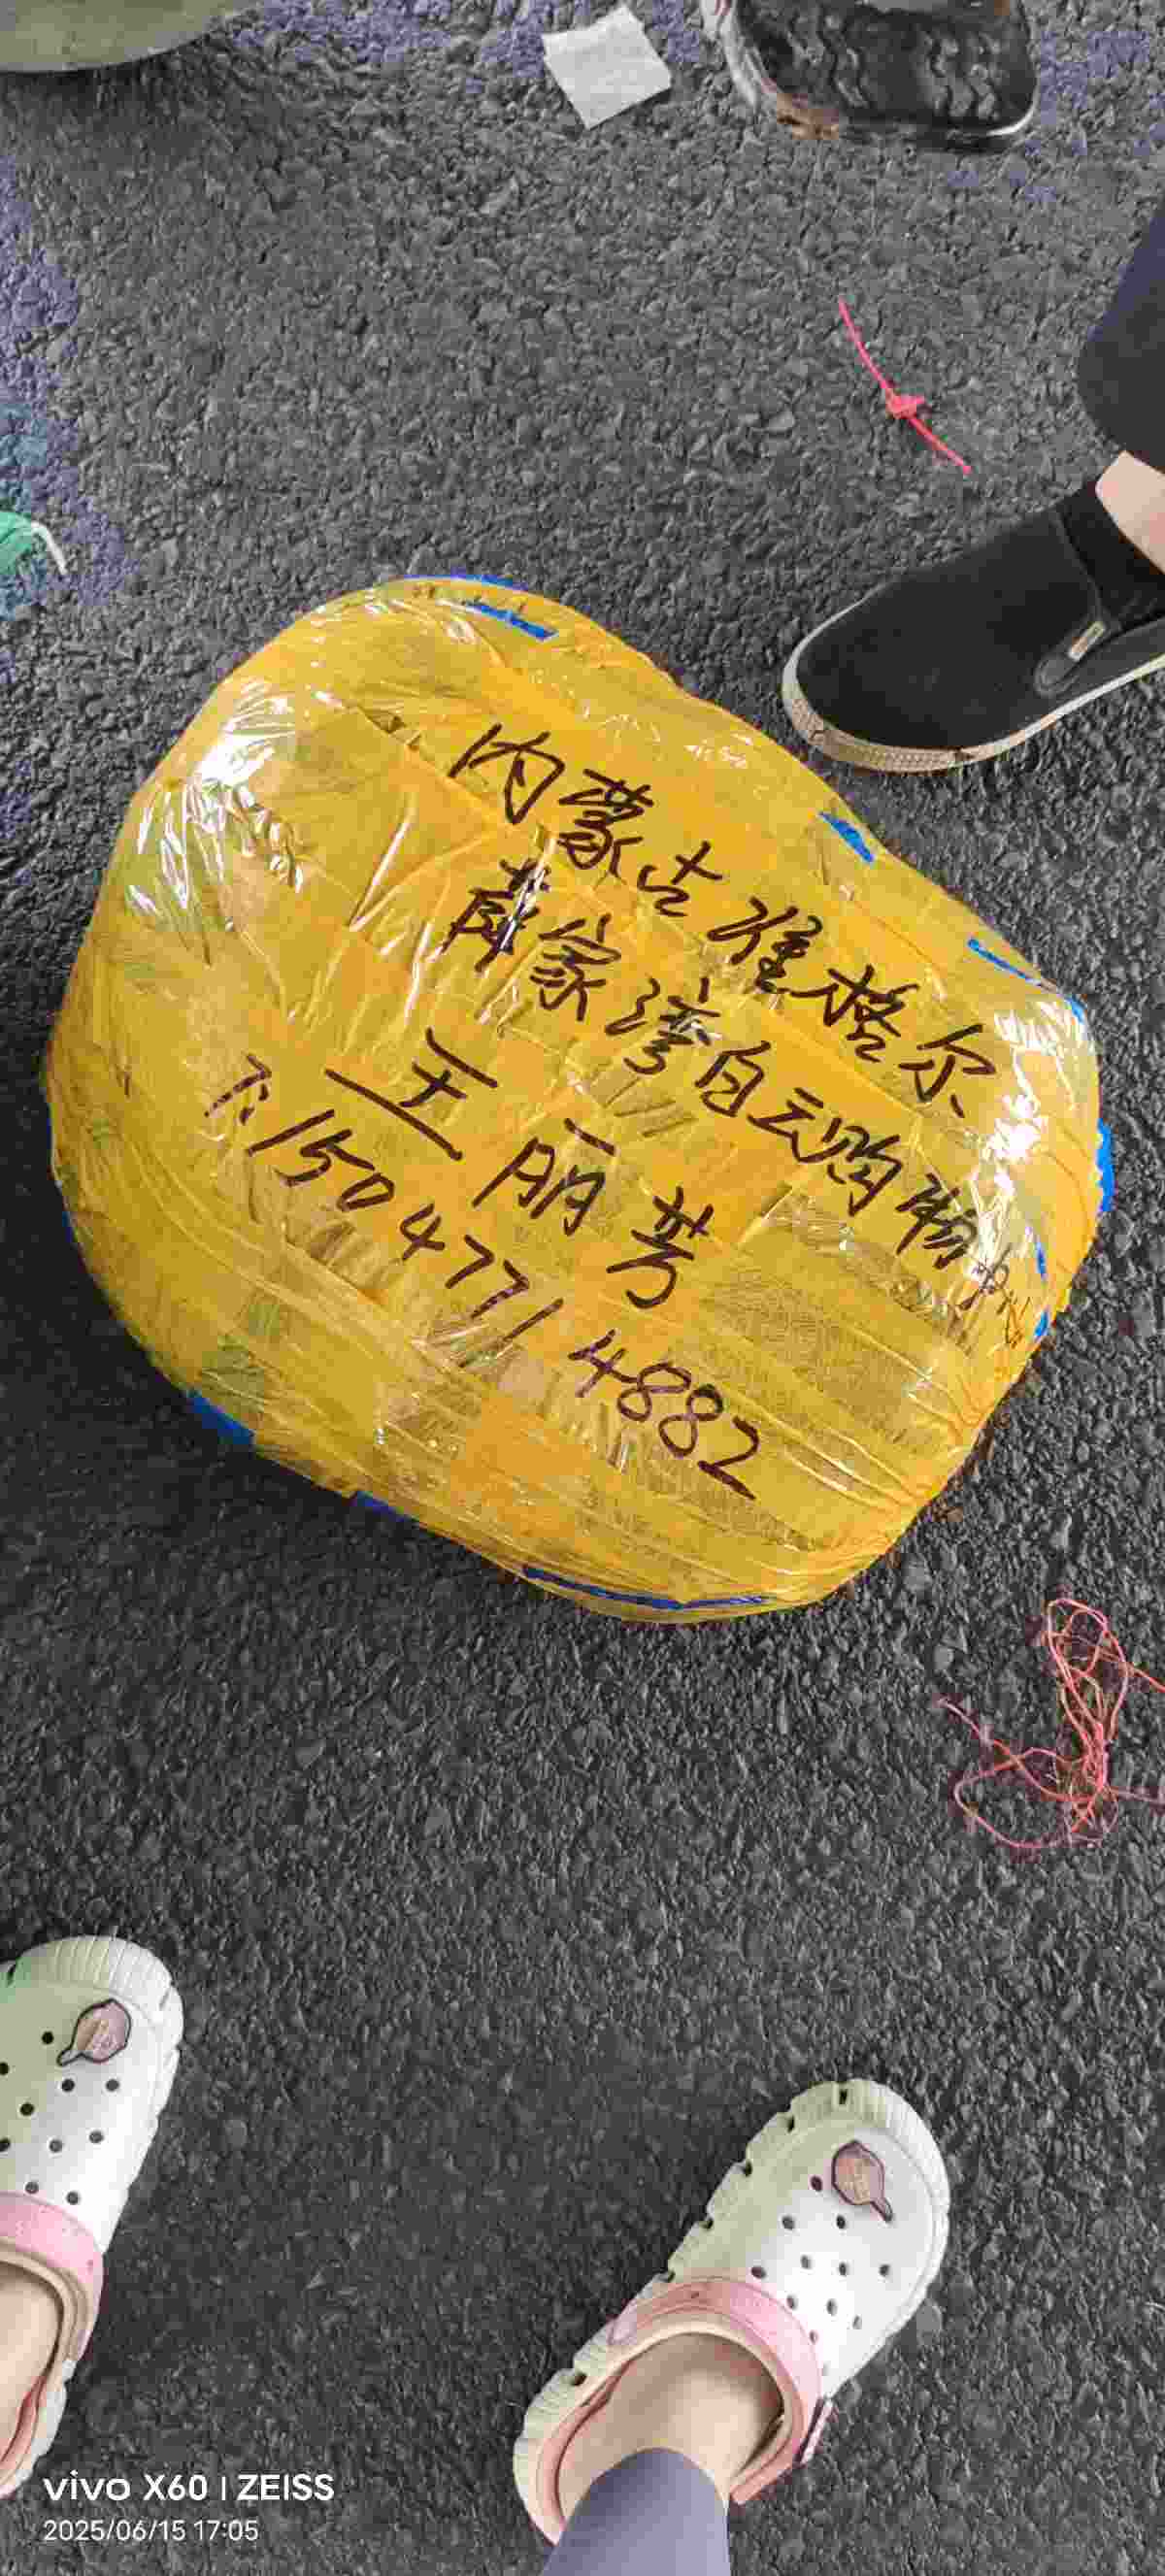 内蒙古准格尔
薛家湾自云购物中心
王丽芳
T:15047714882
vivo X60 | ZEISS
2025/06/15 17:05